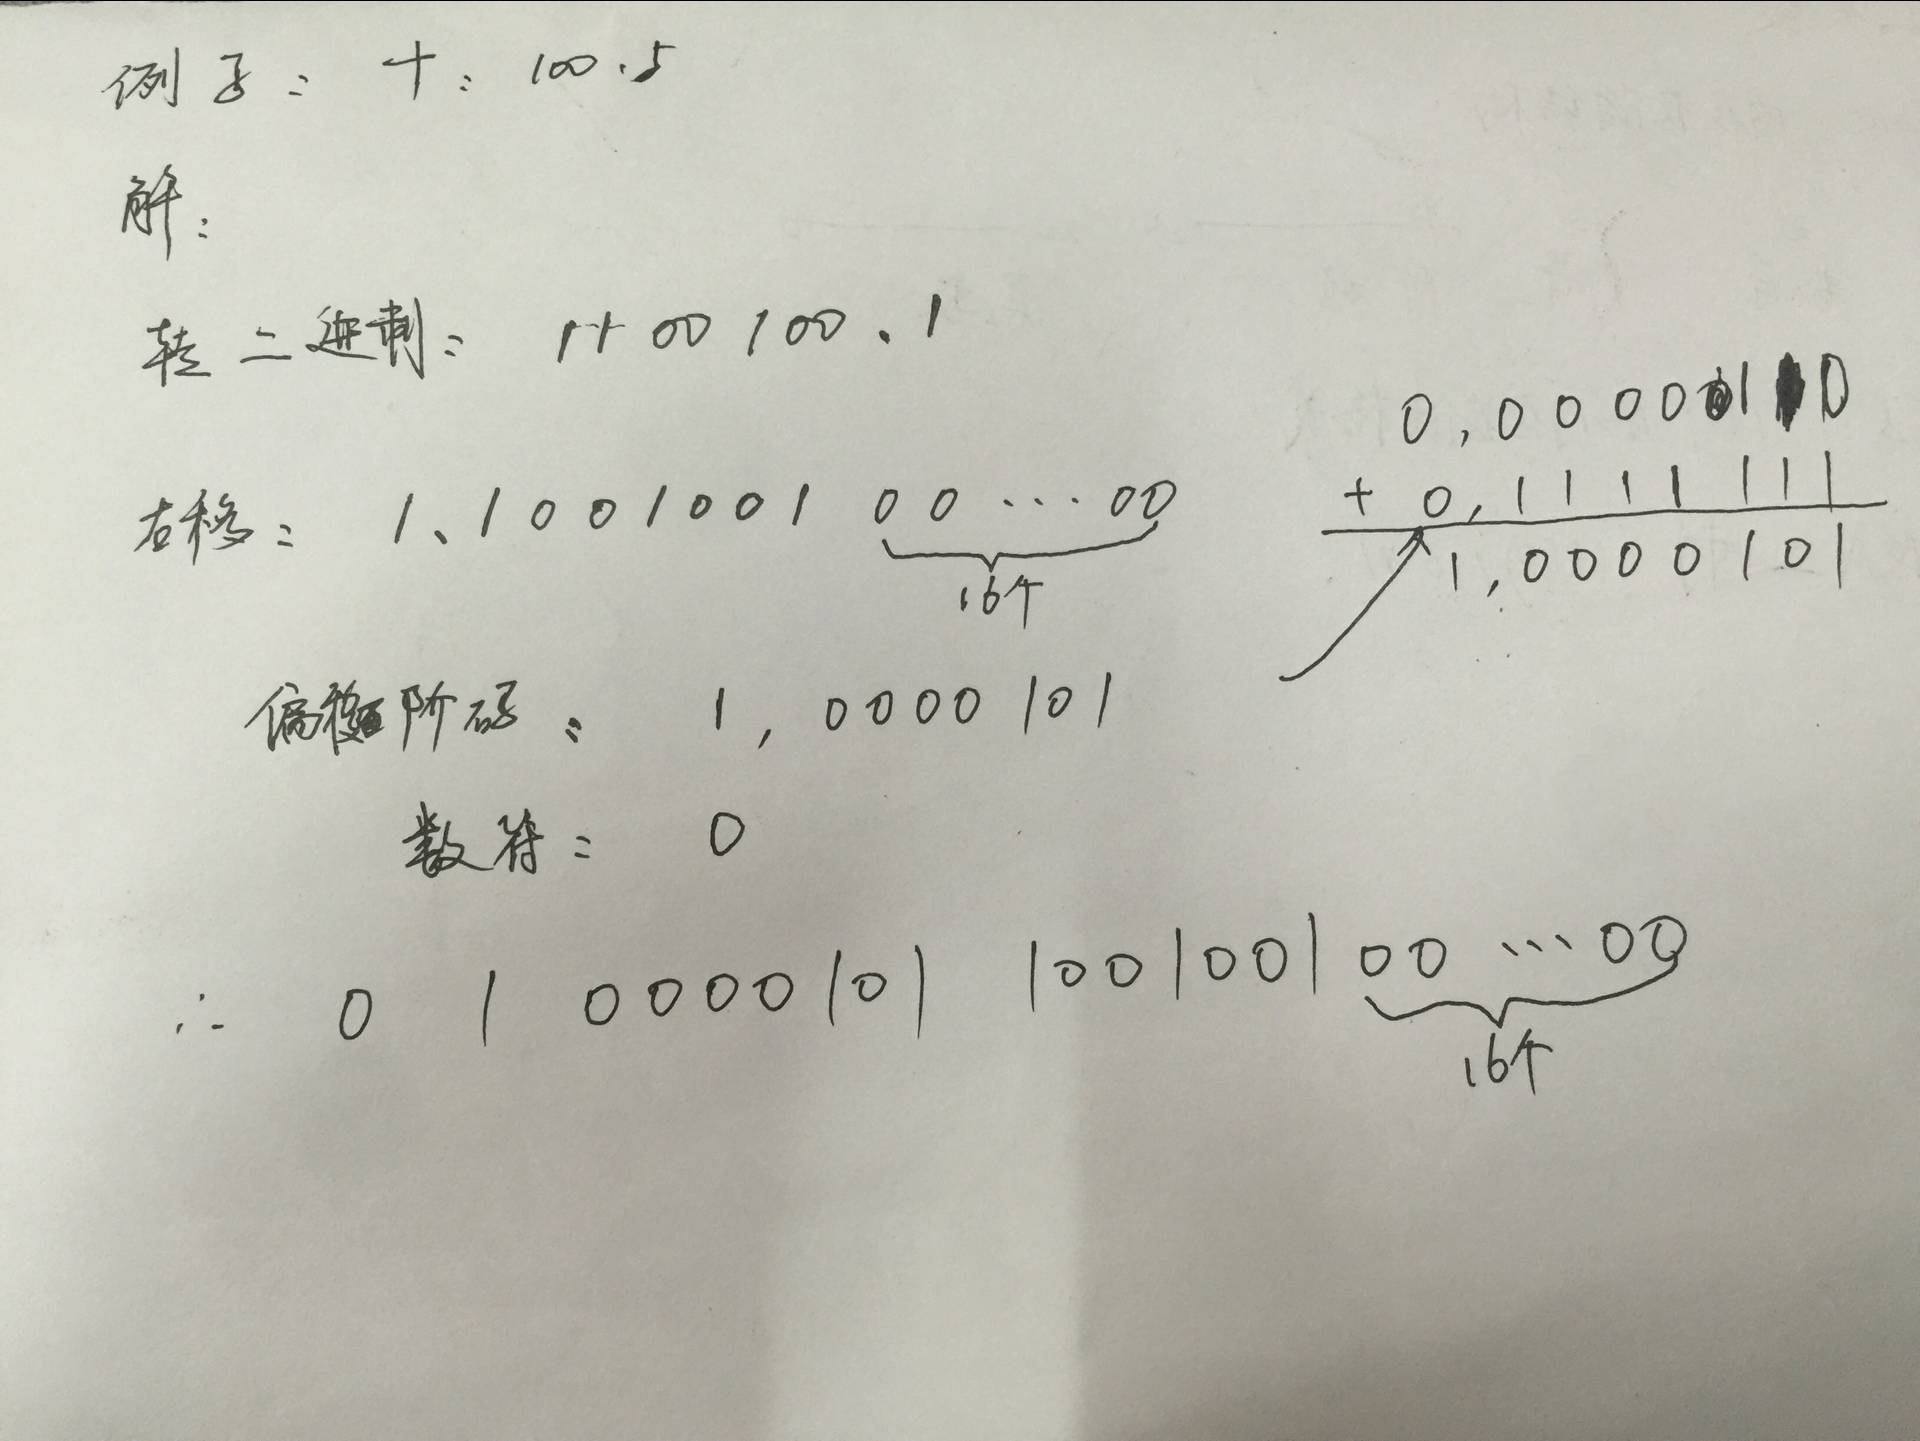 例子: 十: 100.5
解:
转二进制: 1100100.1
右移: 1.1001001 00...00
16个
0,0000110
+ 0,1111111
1,0000101
偏移阶码: 1,0000101
数符: 0
∴ 0 1 0000101 1001001 00...00
16个